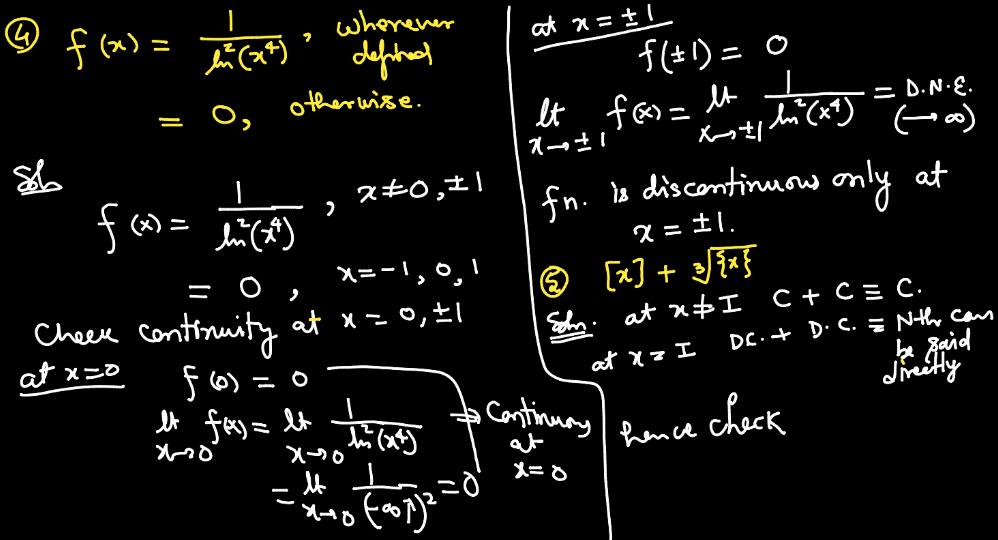 ④ f(x) = 1/ln²(x⁴), whenever defined
= 0, otherwise.
Soln
f(x) = 1/ln²(x⁴), x≠0,±1
= 0, x=-1,0,1
Check continuity at x = 0,±1
at x=0 f(0) = 0
lt x→0 f(x) = lt x→0 1/ln²(x⁴) ⇒ Continuous at x=0
= lt x→0 1/(-∞↑)² = 0
at x = ±1
f(±1) = 0
lt x→±1 f(x) = lt x→±1 1/ln²(x⁴) = D.N.E. (→∞)
fn. is discontinuous only at
x = ±1.
⑤ [x] + ∛{x}
Soln. at x≠I C + C ≡ C.
at x = I DC. + D.C. ≡ Nth can be said directly
hence check